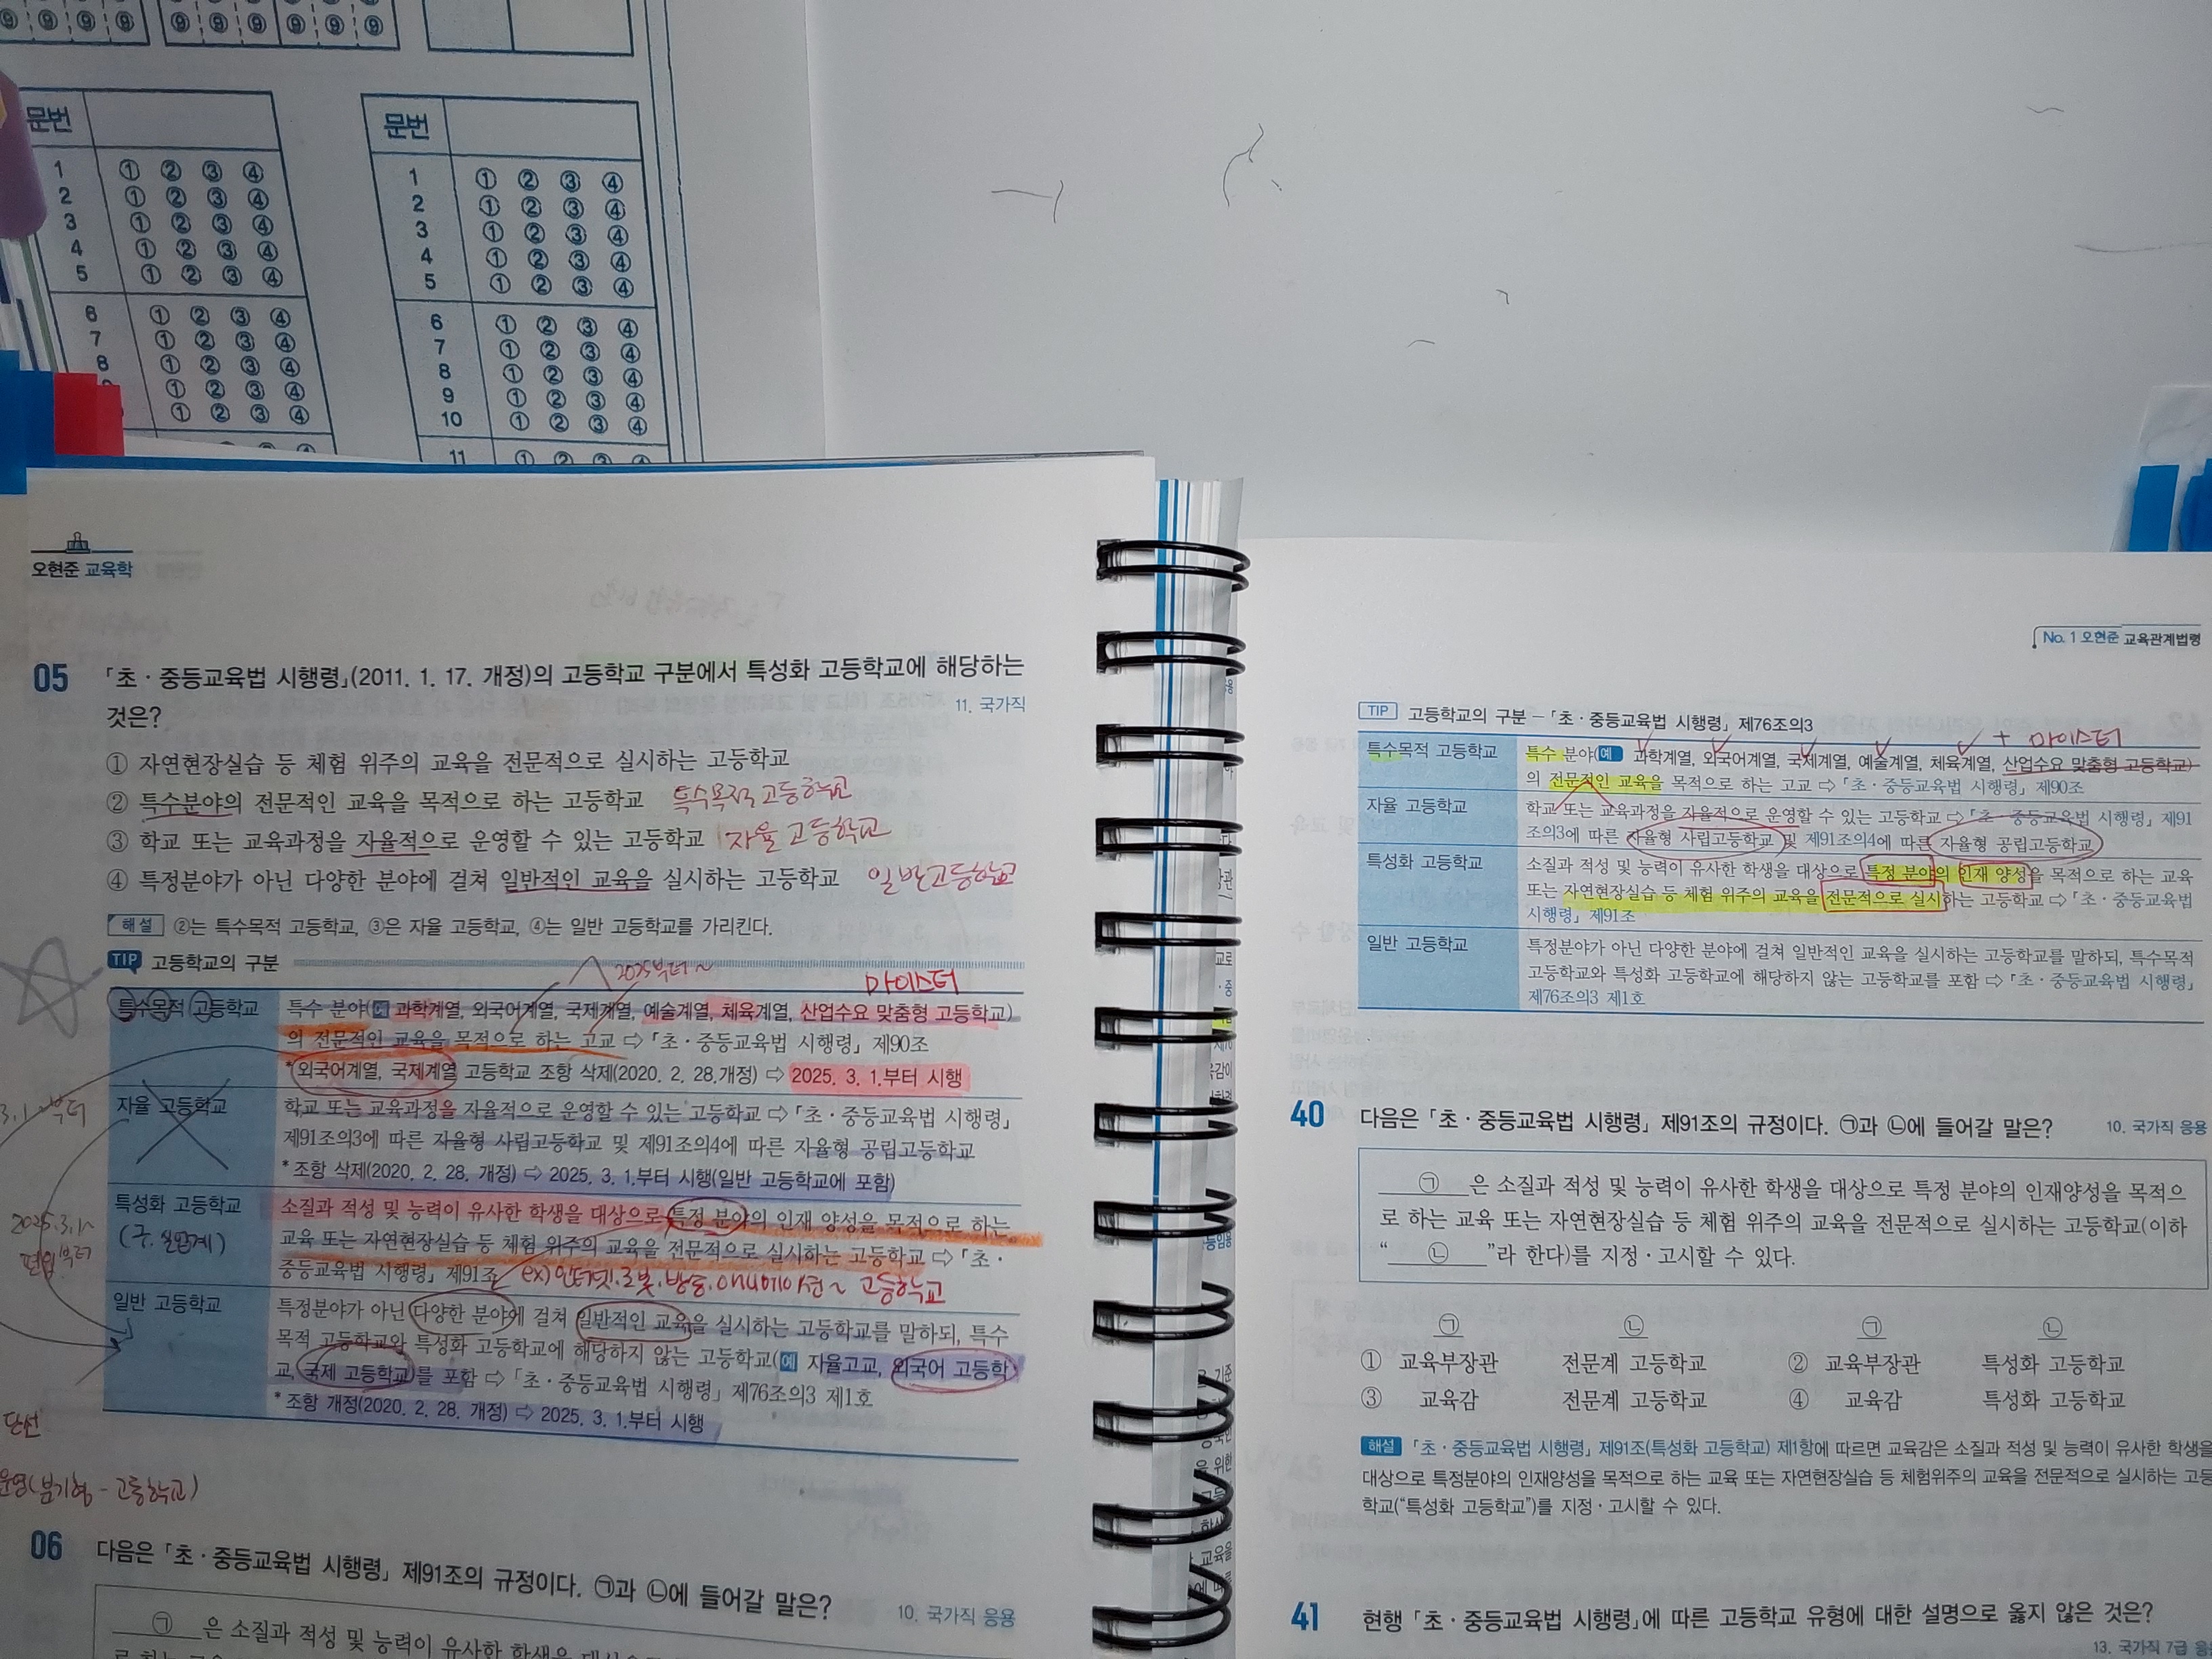 문번
1 ① ② ③ ④
2 ① ② ③ ④
3 ① ② ③ ④
4 ① ② ③ ④
5 ① ② ③ ④
6 ① ② ③ ④
7 ① ② ③ ④
8 ① ② ③ ④
① ② ③ ④
① ② ③ ④
문번
1 ① ② ③ ④
2 ① ② ③ ④
3 ① ② ③ ④
4 ① ② ③ ④
5 ① ② ③ ④
6 ① ② ③ ④
7 ① ② ③ ④
8 ① ② ③ ④
9 ① ② ③ ④
10 ① ② ③ ④
11 ① ② ③ ④
오현준 교육학
05 「초·중등교육법 시행령」(2011. 1. 17. 개정)의 고등학교 구분에서 특성화 고등학교에 해당하는
것은? 11. 국가직
① 자연현장실습 등 체험 위주의 교육을 전문적으로 실시하는 고등학교
② 특수분야의 전문적인 교육을 목적으로 하는 고등학교 특수목적고등학교
③ 학교 또는 교육과정을 자율적으로 운영할 수 있는 고등학교 자율고등학교
④ 특정분야가 아닌 다양한 분야에 걸쳐 일반적인 교육을 실시하는 고등학교 일반고등학교
해설 ②는 특수목적 고등학교, ③은 자율 고등학교, ④는 일반 고등학교를 가리킨다.
TIP 고등학교의 구분
2025부터~ 마이스터
특수목적 고등학교 특수 분야(예 과학계열, 외국어계열, 국제계열, 예술계열, 체육계열, 산업수요 맞춤형 고등학교)
의 전문적인 교육을 목적으로 하는 고교 ⇨ 「초·중등교육법 시행령」 제90조
*외국어계열, 국제계열 고등학교 조항 삭제(2020. 2. 28.개정) ⇨ 2025. 3. 1.부터 시행
3.1~부터
자율 고등학교 학교 또는 교육과정을 자율적으로 운영할 수 있는 고등학교 ⇨ 「초·중등교육법 시행령」
제91조의3에 따른 자율형 사립고등학교 및 제91조의4에 따른 자율형 공립고등학교
* 조항 삭제(2020. 2. 28. 개정) ⇨ 2025. 3. 1.부터 시행(일반 고등학교에 포함)
특성화 고등학교 소질과 적성 및 능력이 유사한 학생을 대상으로 특정 분야의 인재 양성을 목적으로 하는
(구. 실업계) 교육 또는 자연현장실습 등 체험 위주의 교육을 전문적으로 실시하는 고등학교 ⇨ 「초·
중등교육법 시행령」 제91조 ex) 인터넷·로봇·방송·애니메이션~ 고등학교
2025.3.1~
부터
일반 고등학교 특정분야가 아닌 다양한 분야에 걸쳐 일반적인 교육을 실시하는 고등학교를 말하되, 특수
목적 고등학교와 특성화 고등학교에 해당하지 않는 고등학교(예 자율고교, 외국어 고등학
교, 국제 고등학교)를 포함 ⇨ 「초·중등교육법 시행령」 제76조의3 제1호
* 조항 개정(2020. 2. 28. 개정) ⇨ 2025. 3. 1.부터 시행
단선
운영(분기형 - 고등학교)
06 다음은 「초·중등교육법 시행령」 제91조의 규정이다. ㉠과 ㉡에 들어갈 말은?
10. 국가직 응용
㉠ 은 소질과 적성 및 능력이 유사한 학생을 대상으로
No. 1 오현준 교육관계법령
TIP 고등학교의 구분 – 「초·중등교육법 시행령」 제76조의3
+ 마이스터
특수목적 고등학교 특수 분야(예 과학계열, 외국어계열, 국제계열, 예술계열, 체육계열, 산업수요 맞춤형 고등학교)
의 전문적인 교육을 목적으로 하는 고교 ⇨ 「초·중등교육법 시행령」 제90조
자율 고등학교 학교 또는 교육과정을 자율적으로 운영할 수 있는 고등학교 ⇨ 「초·중등교육법 시행령」 제91
조의3에 따른 자율형 사립고등학교 및 제91조의4에 따른 자율형 공립고등학교
특성화 고등학교 소질과 적성 및 능력이 유사한 학생을 대상으로 특정 분야의 인재 양성을 목적으로 하는 교육
또는 자연현장실습 등 체험 위주의 교육을 전문적으로 실시하는 고등학교 ⇨ 「초·중등교육법
시행령」 제91조
일반 고등학교 특정분야가 아닌 다양한 분야에 걸쳐 일반적인 교육을 실시하는 고등학교를 말하되, 특수목적
고등학교와 특성화 고등학교에 해당하지 않는 고등학교를 포함 ⇨ 「초·중등교육법 시행령」
제76조의3 제1호
40 다음은 「초·중등교육법 시행령」 제91조의 규정이다. ㉠과 ㉡에 들어갈 말은? 10. 국가직 응용
㉠ 은 소질과 적성 및 능력이 유사한 학생을 대상으로 특정 분야의 인재양성을 목적으
로 하는 교육 또는 자연현장실습 등 체험 위주의 교육을 전문적으로 실시하는 고등학교(이하
“ ㉡ ”라 한다)를 지정·고시할 수 있다.
㉠ ㉡ ㉠ ㉡
① 교육부장관 전문계 고등학교 ② 교육부장관 특성화 고등학교
③ 교육감 전문계 고등학교 ④ 교육감 특성화 고등학교
해설 「초·중등교육법 시행령」 제91조(특성화 고등학교) 제1항에 따르면 교육감은 소질과 적성 및 능력이 유사한 학생을
대상으로 특정분야의 인재양성을 목적으로 하는 교육 또는 자연현장실습 등 체험위주의 교육을 전문적으로 실시하는 고등
학교(“특성화 고등학교”)를 지정·고시할 수 있다.
41 현행 「초·중등교육법 시행령」에 따른 고등학교 유형에 대한 설명으로 옳지 않은 것은?
13. 국가직 7급 응용